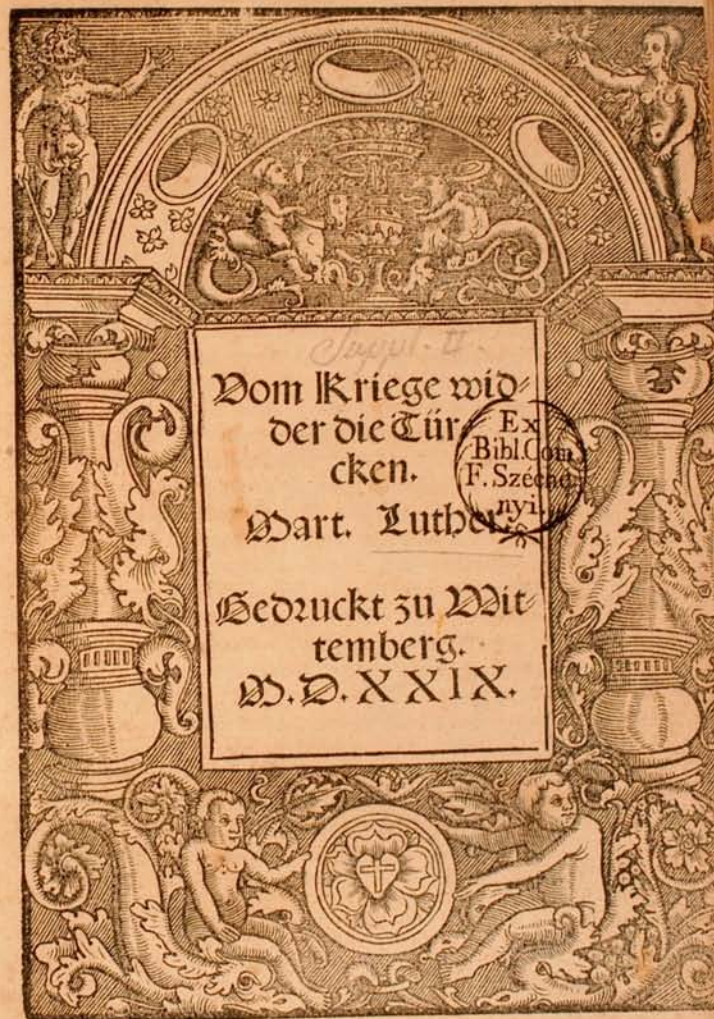 Suppl. II.
Vom Kriege wid⸗
der die Tür⸗
cken.
Mart. Luther.
Gedruckt zu Wit⸗
temberg.
M.D.XXIX.
Ex
Bibl. Com.
F. Széché⸗
nyi.